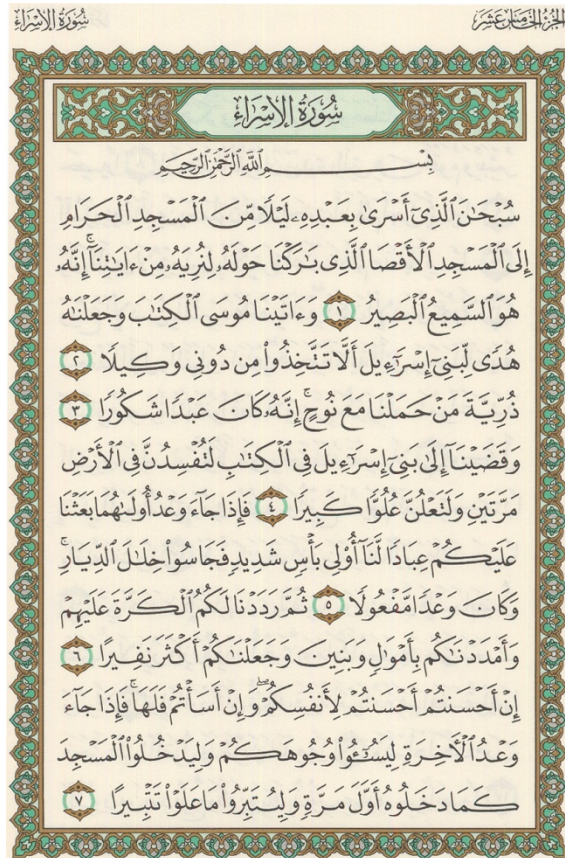 الجزء الخامس عشر
سورة الإسراء
سُورَةُ الإِسْرَاءِ
بِسْمِ ٱللَّهِ ٱلرَّحْمَٰنِ ٱلرَّحِيمِ
سُبْحَٰنَ ٱلَّذِىٓ أَسْرَىٰ بِعَبْدِهِۦ لَيْلًا مِّنَ ٱلْمَسْجِدِ ٱلْحَرَامِ
إِلَى ٱلْمَسْجِدِ ٱلْأَقْصَا ٱلَّذِى بَٰرَكْنَا حَوْلَهُۥ لِنُرِيَهُۥ مِنْ ءَايَٰتِنَآ ۚ إِنَّهُۥ
هُوَ ٱلسَّمِيعُ ٱلْبَصِيرُ ١ وَءَاتَيْنَا مُوسَى ٱلْكِتَٰبَ وَجَعَلْنَٰهُ
هُدًى لِّبَنِىٓ إِسْرَٰٓءِيلَ أَلَّا تَتَّخِذُوا۟ مِن دُونِى وَكِيلًا ٢
ذُرِّيَّةَ مَنْ حَمَلْنَا مَعَ نُوحٍ ۚ إِنَّهُۥ كَانَ عَبْدًا شَكُورًا ٣
وَقَضَيْنَآ إِلَىٰ بَنِىٓ إِسْرَٰٓءِيلَ فِى ٱلْكِتَٰبِ لَتُفْسِدُنَّ فِى ٱلْأَرْضِ
مَرَّتَيْنِ وَلَتَعْلُنَّ عُلُوًّا كَبِيرًا ٤ فَإِذَا جَآءَ وَعْدُ أُولَىٰهُمَا بَعَثْنَا
عَلَيْكُمْ عِبَادًا لَّنَآ أُو۟لِى بَأْسٍ شَدِيدٍ فَجَاسُوا۟ خِلَٰلَ ٱلدِّيَارِ ۚ
وَكَانَ وَعْدًا مَّفْعُولًا ٥ ثُمَّ رَدَدْنَا لَكُمُ ٱلْكَرَّةَ عَلَيْهِمْ
وَأَمْدَدْنَٰكُم بِأَمْوَٰلٍ وَبَنِينَ وَجَعَلْنَٰكُمْ أَكْثَرَ نَفِيرًا ٦
إِنْ أَحْسَنتُمْ أَحْسَنتُمْ لِأَنفُسِكُمْ ۖ وَإِنْ أَسَأْتُمْ فَلَهَا ۚ فَإِذَا جَآءَ
وَعْدُ ٱلْءَاخِرَةِ لِيَسُۥٓـُٔوا۟ وُجُوهَكُمْ وَلِيَدْخُلُوا۟ ٱلْمَسْجِدَ
كَمَا دَخَلُوهُ أَوَّلَ مَرَّةٍ وَلِيُتَبِّرُوا۟ مَا عَلَوْا۟ تَتْبِيرًا ٧